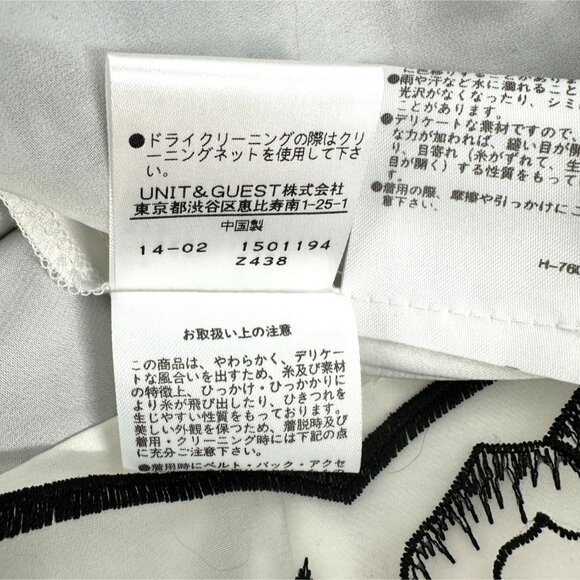 ●ドライクリーニングの際はクリ
ーニングネットを使用して下さ
い。
UNIT&GUEST株式会社
東京都渋谷区恵比寿南1-25-1
中国製
14-02 1501194
Z438
お取扱い上の注意
この商品は、やわらかく、デリケー
トな風合いを出すため、糸及び素材
の特徴上、ひっかけ・ひっかかりに
より糸が飛び出したり、ひきつれを
生じやすい性質をもっております。
美しい外観を保つため、着脱時及び
着用・クリーニング時には下記の点
に充分ご注意下さい。
●着用時にベルト・バック・アクセ
●雨や汗など水に濡れること
光沢がなくなったり、シミ
ことがあります。
●デリケートな素材ですので、
な力が加われば、縫い目が開
り、目寄れ(糸がずれて、生
目が開く)する性質をもって
す。
●着用の際、摩擦や引っかけにこ
意下さい。
H-760